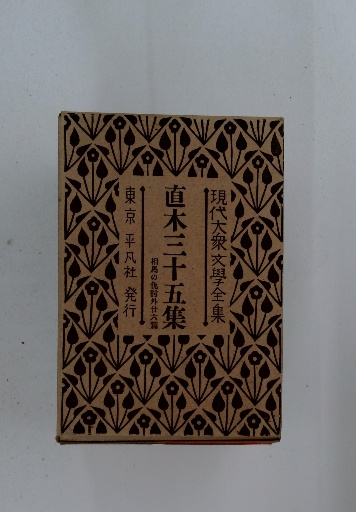 現代大衆文學全集
直木三十五集
相馬の仇討外廿六篇
東京 平凡社 発行